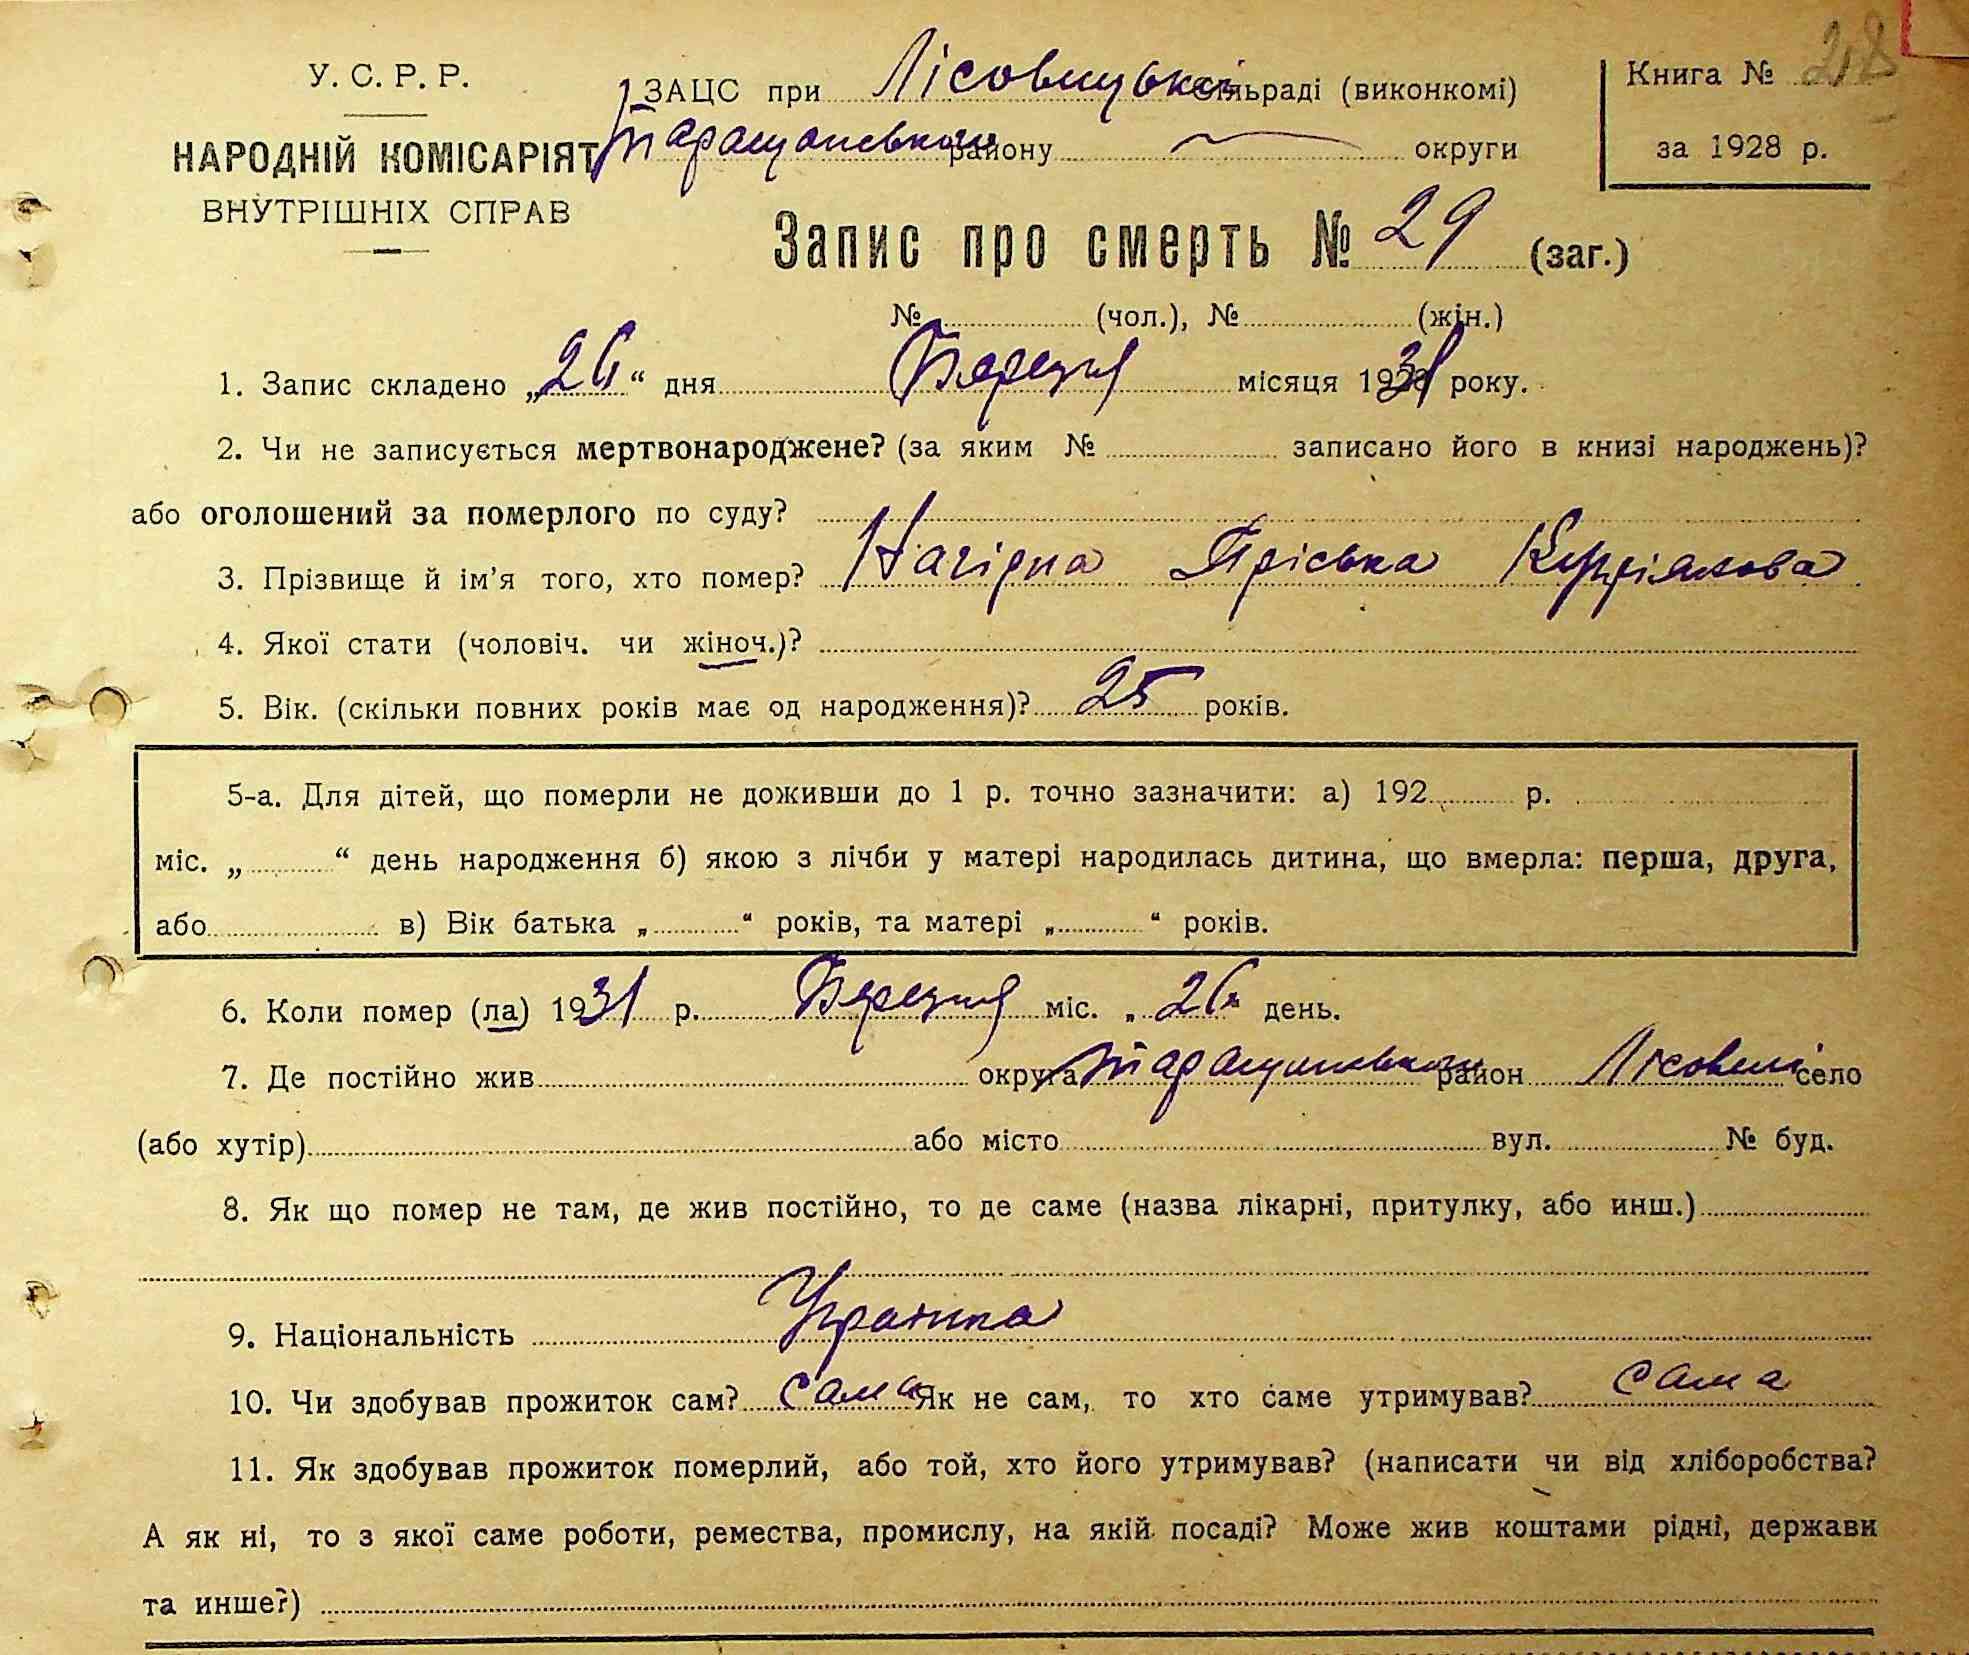 У. С. Р. Р.
НАРОДНІЙ КОМІСАРІЯТ
ВНУТРІШНІХ СПРАВ
ЗАЦС при Лісовицькій сільраді (виконкомі)
Таращанського району округи
Книга № 28
за 1928 р.
Запис про смерть № 29 (заг.)
№ (чол.), № (жін.)
1. Запис складено „26“ дня Березня місяця 1931 року.
2. Чи не записується мертвонароджене? (за яким № записано його в книзі народжень)?
або оголошений за померлого по суду?
3. Прізвище й ім’я того, хто помер? Нагідна Пріська Купріянова
4. Якої стати (чоловіч. чи жіноч.)?
5. Вік. (скільки повних років має од народження)? 25 років.
5-а. Для дітей, що померли не доживши до 1 р. точно зазначити: а) 192 р.
міс. „ “ день народження б) якою з лічби у матері народилась дитина, що вмерла: перша, друга,
або в) Вік батька „ “ років, та матері „ “ років.
6. Коли помер (ла) 1931 р. Березня міс. „26“ день.
7. Де постійно жив округа Таращанського район Лісовичі село
(або хутір) або місто вул. № буд.
8. Як що помер не там, де жив постійно, то де саме (назва лікарні, притулку, або инш.)
9. Національність Українка
10. Чи здобував прожиток сам? сама Як не сам, то хто саме утримував? сама
11. Як здобував прожиток померлий, або той, хто його утримував? (написати чи від хліборобства?
А як ні, то з якої саме роботи, ремества, промислу, на якій посаді? Може жив коштами рідні, держави
та инше?)